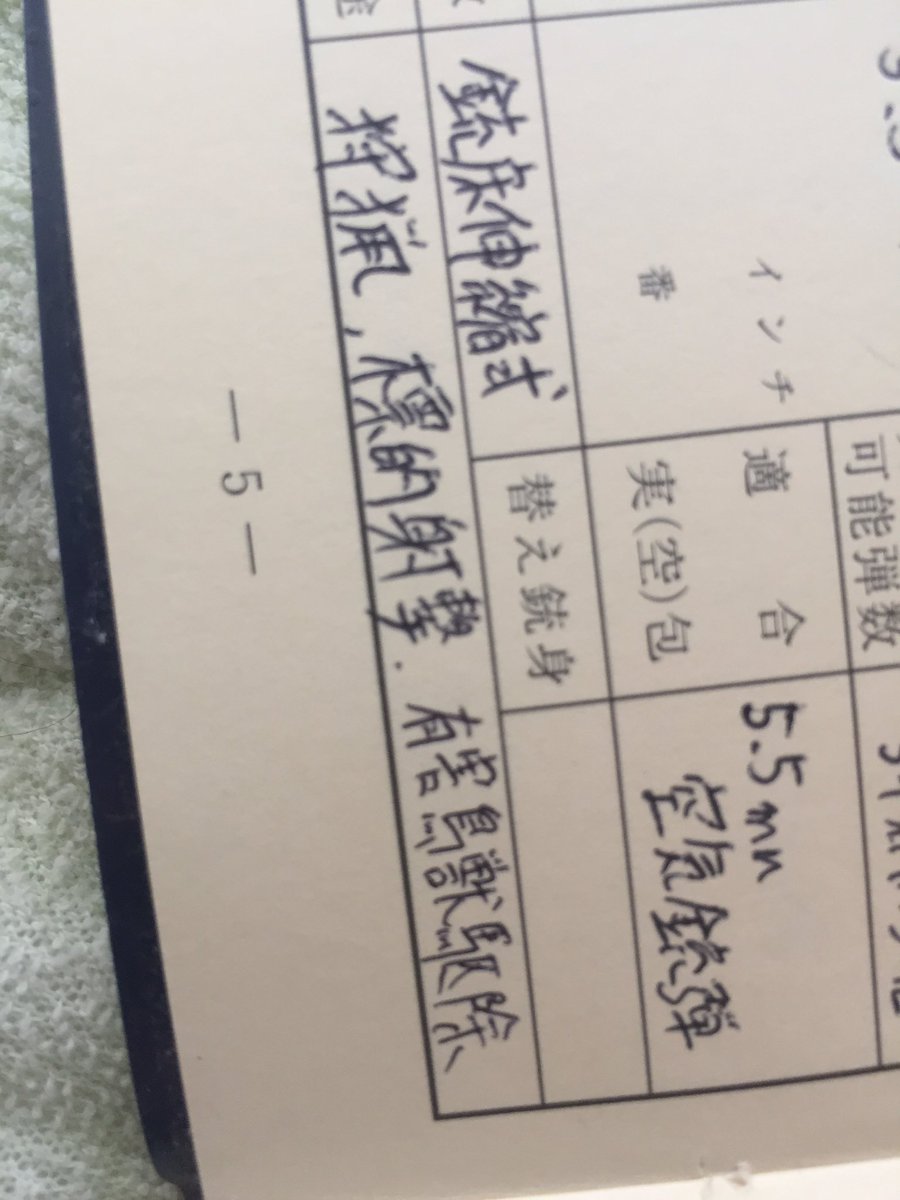 可能弾数
インチ 適合 5.5mm
番 実(空)包 空気銃弾
銃床伸縮式 替え銃身
狩猟, 標的射撃. 有害鳥獣駆除
— 5 —